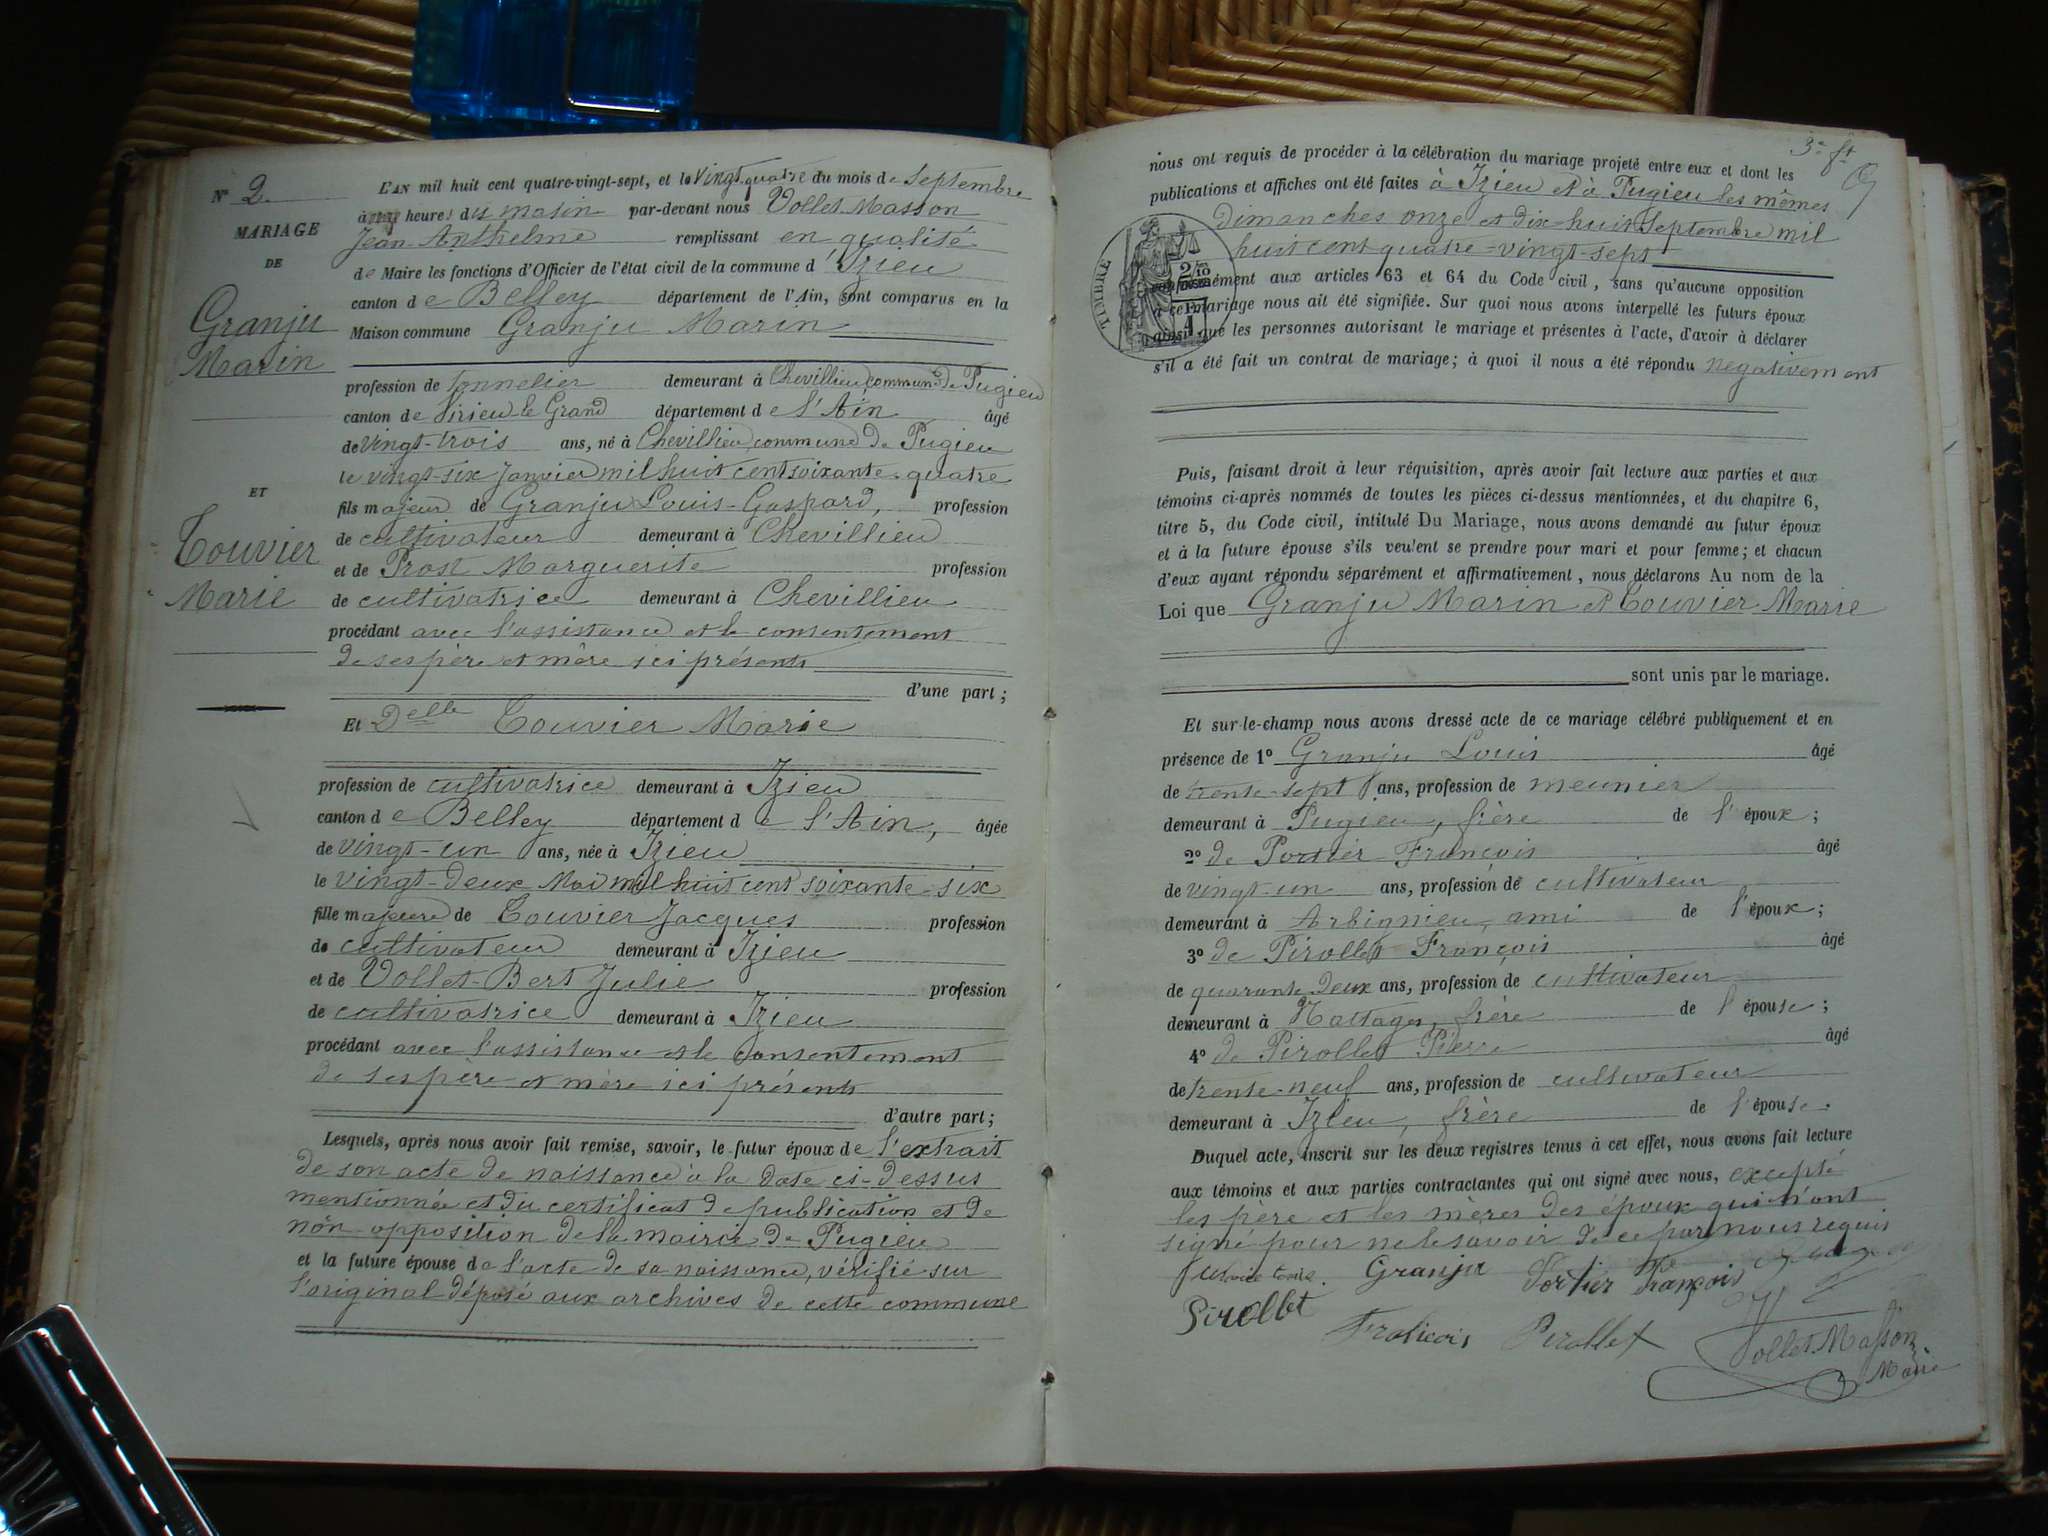 N° 2
MARIAGE
DE
Granju
Marin
ET
Touvier
Marie
L'AN mil huit cent quatre-vingt-sept, et le vingt-quatre du mois de Septembre
à heures du matin par-devant nous Vollet-Masson
Jean-Anthelme remplissant en qualité
de Maire les fonctions d'Officier de l'état civil de la commune d'Izieu
canton de Belley département de l'Ain, sont comparus en la
Maison commune Granju Marin
profession de tonnelier demeurant à Chevillieu, commune de Pugieu
canton de Virieu le Grand département de l'Ain âgé
de vingt-trois ans, né à Chevillieu, commune de Pugieu
le vingt-six Janvier mil huit cent soixante-quatre
fils majeur de Granju Louis-Gaspard, profession
de cultivateur demeurant à Chevillieu
et de Prost Marguerite profession
de cultivatrice demeurant à Chevillieu
procédant avec l'assistance et le consentement
de ses père et mère ici présents
d'une part;
Et Delle Touvier Marie
profession de cultivatrice demeurant à Izieu
canton de Belley département de l'Ain, âgée
de vingt-un ans, née à Izieu
le vingt-deux Mai mil huit cent soixante-six
fille majeure de Touvier Jacques profession
de cultivateur demeurant à Izieu
et de Vollet-Bert Julie profession
de cultivatrice demeurant à Izieu
procédant avec l'assistance et le consentement
de ses père et mère ici présents
d'autre part;
Lesquels, après nous avoir fait remise, savoir, le futur époux de l'extrait
de son acte de naissance à la date ci-dessus
mentionnée et du certificat de publication et de
non opposition de la mairie de Pugieu
et la future épouse de l'acte de sa naissance, vérifié sur
l'original déposé aux archives de cette commune
3e ft
nous ont requis de procéder à la célébration du mariage projeté entre eux et dont les
publications et affiches ont été faites à Izieu et à Pugieu les mêmes
dimanches onze et dix-huit Septembre mil
huit cent quatre-vingt-sept
TIMBRE
2/10
conformément aux articles 63 et 64 du Code civil, sans qu'aucune opposition
à ce mariage nous ait été signifiée. Sur quoi nous avons interpellé les futurs époux
ainsi que les personnes autorisant le mariage et présentes à l'acte, d'avoir à déclarer
s'il a été fait un contrat de mariage; à quoi il nous a été répondu négativement
Puis, faisant droit à leur réquisition, après avoir fait lecture aux parties et aux
témoins ci-après nommés de toutes les pièces ci-dessus mentionnées, et du chapitre 6,
titre 5, du Code civil, intitulé Du Mariage, nous avons demandé au futur époux
et à la future épouse s'ils veulent se prendre pour mari et pour femme; et chacun
d'eux ayant répondu séparément et affirmativement, nous déclarons Au nom de la
Loi que Granju Marin et Touvier Marie
sont unis par le mariage.
Et sur-le-champ nous avons dressé acte de ce mariage célébré publiquement et en
présence de 1° Granju Louis âgé
de trente-sept ans, profession de meunier
demeurant à Pugieu, frère de l'époux;
2° de Portier François âgé
de vingt-un ans, profession de cultivateur
demeurant à Arbignieu, ami de l'époux;
3° de Pirollet François âgé
de quarante deux ans, profession de cultivateur
demeurant à Nattages, frère de l'épouse;
4° de Pirollet Pierre âgé
de trente-neuf ans, profession de cultivateur
demeurant à Izieu, frère de l'épouse.
Duquel acte, inscrit sur les deux registres tenus à cet effet, nous avons fait lecture
aux témoins et aux parties contractantes qui ont signé avec nous, excepté
les père et les mères des époux qui n'ont
signé pour ne le savoir de ce par nous requis
Granju Portier François
Pirollet François Pirollet Vollet-Masson
Maire